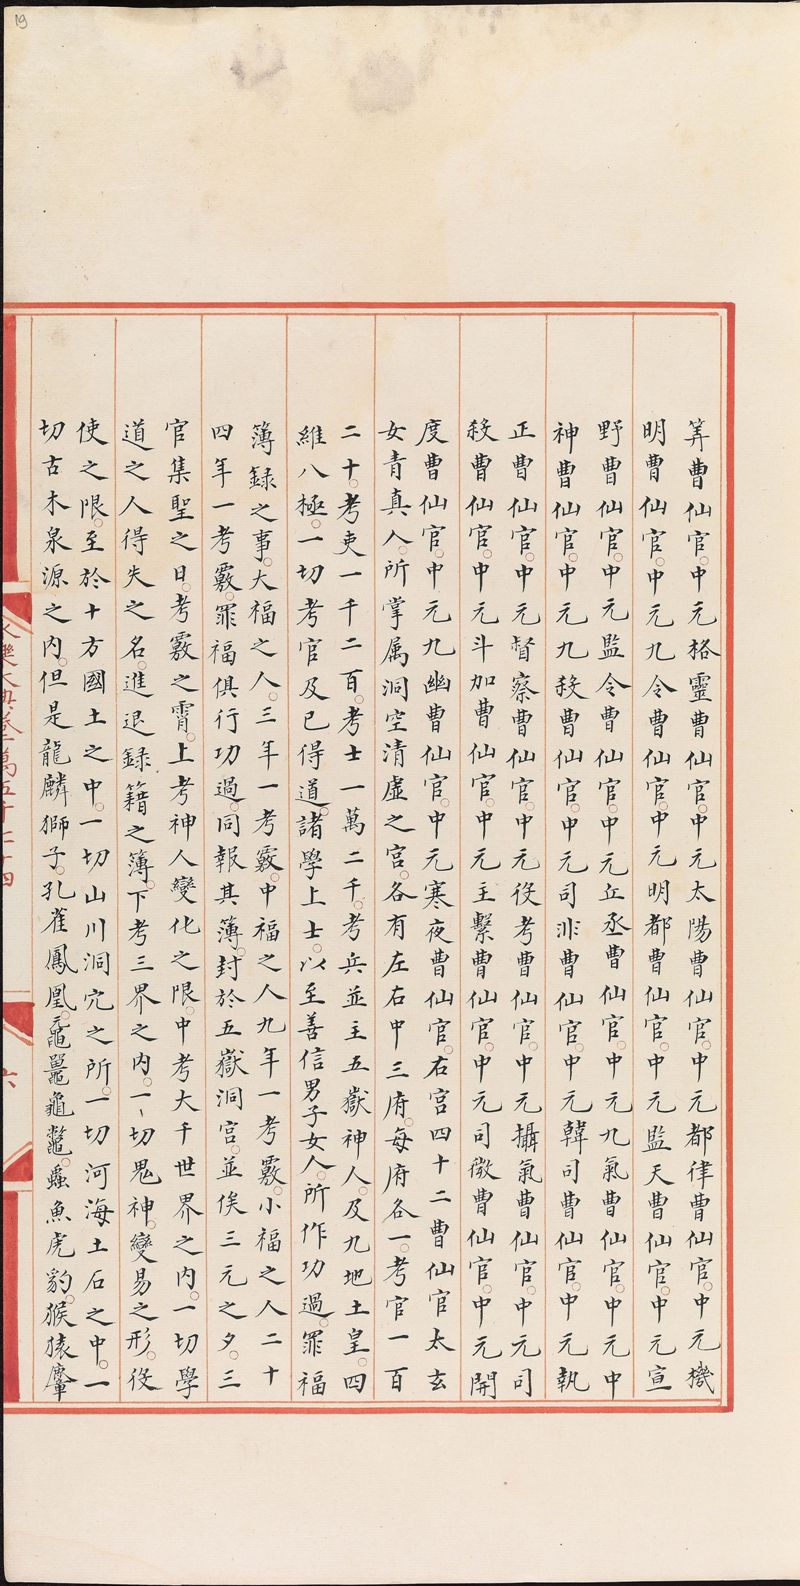 筭曹仙官。中元格靈曹仙官。中元太陽曹仙官。中元都律曹仙官。中元機
明曹仙官。中元九令曹仙官。中元明都曹仙官。中元監天曹仙官。中元宣
野曹仙官。中元監令曹仙官。中元丘丞曹仙官。中元九氣曹仙官。中元中
神曹仙官。中元九殺曹仙官。中元司非曹仙官。中元韓司曹仙官。中元執
正曹仙官。中元督察曹仙官。中元役考曹仙官。中元攝氣曹仙官。中元司
殺曹仙官。中元斗加曹仙官。中元主繫曹仙官。中元司徵曹仙官。中元開
度曹仙官。中元九幽曹仙官。中元寒夜曹仙官。右宮四十二曹仙官太玄
女青真人。所掌属洞空清虛之宮。各有左右中三府。每府各一。考官一百
二十。考吏一千二百。考士一萬二千。考兵並主五嶽神人。及九地土皇。四
維八極。一切考官及已得道。諸學上士。以至善信男子女人。所作功過。罪福
簿録之事。大福之人。三年一考覈。中福之人九年一考覈。小福之人二十
四年一考覈。罪福俱行功過。同報其簿。封於五嶽洞宮。並俟三元之夕。三
官集聖之日。考覈之霄。上考神人變化之限。中考大千世界之内。一切學
道之人得失之名。進退録籍之簿。下考三界之内。一切鬼神。變易之形。役
使之限。至於十方國土之中。一切山川洞穴之所。一切河海土石之中。一
切古木泉源之内。但是龍麟獅子。孔雀鳳凰。黿鼉龜鼈。蟲魚虎豹。猴猿麞
永樂大典卷二萬五十二十四
六
19